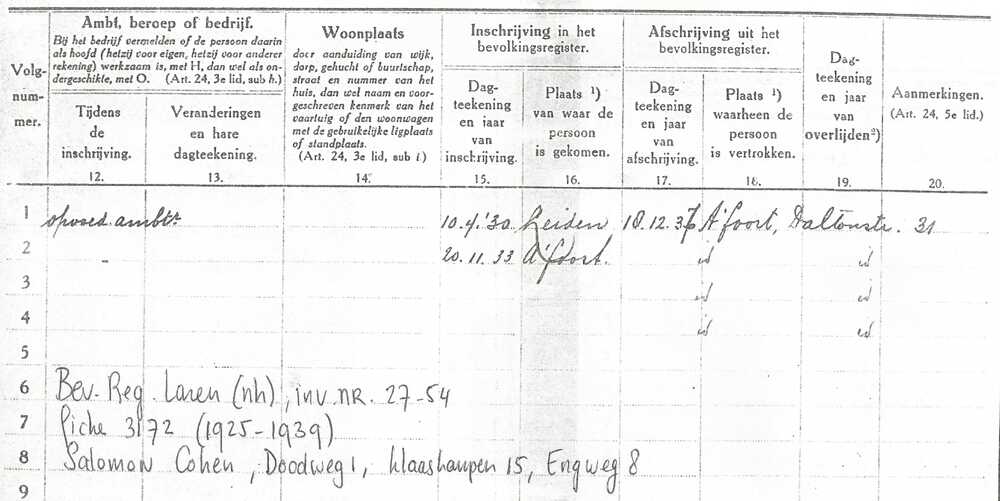 Volg-
num-
mer.
Ambt, beroep of bedrijf.
Bij het bedrijf vermelden of de persoon daarin
als hoofd (hetzij voor eigen, hetzij voor anderer
rekening) werkzaam is, met H, dan wel als on-
dergeschikte, met O. (Art. 24, 3e lid, sub h.)
Tijdens
de
inschrijving.
12.
Veranderingen
en hare
dagteekening.
13.
Woonplaats
door aanduiding van wijk,
dorp, gehucht of buurtschap,
straat en nummer van het
huis, dan wel naam en voor-
geschreven kenmerk van het
vaartuig of den woonwagen
met de gebruikelijke ligplaats
of standplaats.
(Art. 24, 3e lid, sub i.)
14.
Inschrijving in het
bevolkingsregister.
Dag-
teekening
en jaar
van
inschrijving.
15.
Plaats ¹)
van waar de
persoon
is gekomen.
16.
Afschrijving uit het
bevolkingsregister.
Dag-
teekening
en jaar
van
afschrijving.
17.
Plaats ¹)
waarheen de
persoon
is vertrokken.
18.
Dag-
teekening
en jaar
van
overlijden²)
19.
Aanmerkingen.
(Art. 24, 5e lid.)
20.
1 ambtr 10.4.'30 Leiden 18.12.36 A'foort, Daltonstr. 31
2 20.11.33 A'foort. id id
3 id id
4 id id
5
6 Bev. Reg. Laren (nh), inv. nr. 27-54
7 fiche 3172 (1925-1939)
8 Salomon Cohen, Doodweg 1, Klaaskampen 15, Engweg 8
9